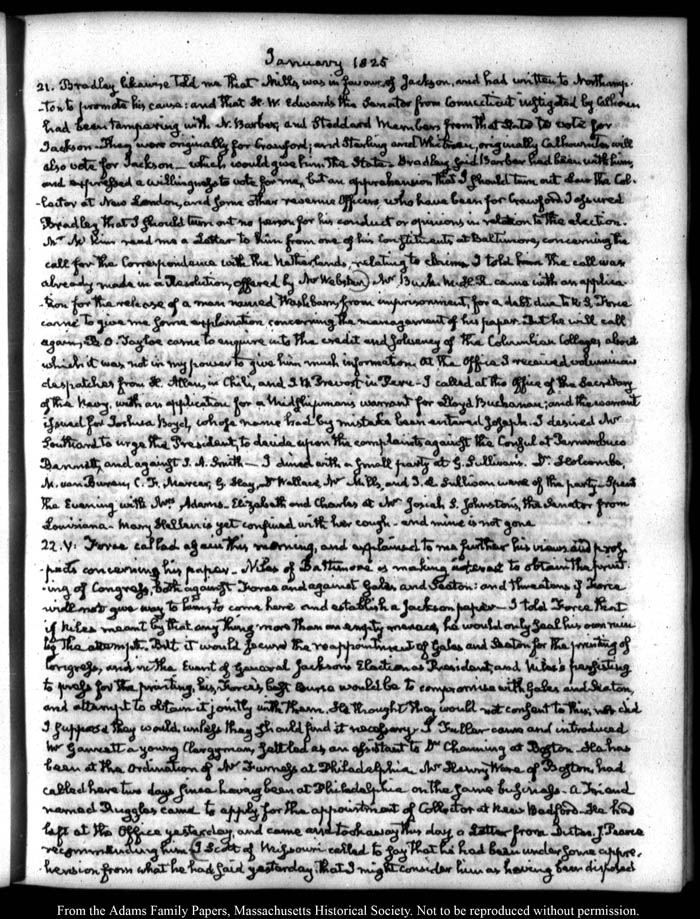 January 1825
21. Bradley likewise told me that Mills was in favour of Jackson, and had written to Northamp-
-ton to promote his cause: and that H. W. Edwards the Senator from Connecticut instigated by Calhoun
had been tampering with N. Barber, and Stoddard Members from that State to vote for
Jackson. They were originally for Crawford; and Sterling and Whitman, originally Calhounites will
also vote for Jackson — which would give him the State. Bradley said Barber had been with him,
and expressed a willingness to vote for me, but an apprehension that I should turn out Law the Col-
-lector at New London, and some other revenue Officers who have been for Crawford. I assured
Bradley that I should turn out no person for his conduct or opinions in relation to the election.
Mr McKim read me a Letter to him from one of his Constituents at Baltimore, concerning the
call for the Correspondence with the Netherlands, relating to claims. I told him the call was
already made in a Resolution, offered by Mr Webster. Mr Buck M.H.R. came with an applica-
-tion for the release of a man named Washburn, from imprisonment, for a debt due to U.S. Force
came to give me some explanation concerning the management of his paper. But he will call
again. B. O. Tayloe came to enquire into the credit and solvency of the Columbian College, about
which it was not in my power to give him much information. At the Office I received voluminous
despatches from H. Allen, in Chili, and J. B. Prevost in Peru — I called at the Office of the Secretary
of the Navy, with an application for a Midshipman's warrant for Lloyd Buchanan; and the warrant
issued for Joshua Boyd, whose name had by mistake been entered Joseph. I desired Mr
Southard to urge the President, to decide upon the complaints against the Consul at Pernambuco
Bennett, and against J. A. Smith — I dined with a small party at G. Sullivan's. Dr Holcombe,
M. van Buren, C. F. Mercer, G. Hay, Dr Wallace, Mr Mills, and J. L. Sullivan were of the party. Spent
the Evening with Mrs Adams. Elizabeth and Charles at Mr Josiah S. Johnston's, the Senator from
Louisiana. Mary Hellen is yet confined with her cough — and mine is not gone
22. V: Force called again this morning, and explained to me further his views and pros-
-pects concerning his paper. Niles of Baltimore is making interest to obtain the print-
-ing of Congress, both against Force and against Gales and Seaton: and threatens if Force
will not give way to him, to come here and establish a Jackson paper — I told Force that
if Niles meant by that any thing more than an empty menace, he would only seal his own ruin
by the attempt. But it would secure the reappointment of Gales and Seaton for the printing of
Congress, and in the Event of General Jackson's Election as President, and Niles's persisting
to press for the printing, his, Force's best Course would be to compromise with Gales and Seaton,
and attempt to obtain it jointly with them. He thought they would not consent to this, nor did
I suppose they would, unless they should find it necessary. T. Fuller came and introduced
Mr Gannett a young Clergyman, settled as an assistant to Dr Channing at Boston. He has
been at the Ordination of Mr Furness at Philadelphia. Mr Henry Ware of Boston, had
called here two days since having been at Philadelphia on the same business. A Friend
named Ruggles came to apply for the appointment of Collector at New Bedford. He had
left at the Office yesterday, and came and took away this day a Letter from Dutee J. Pearce
recommending him. J. Scott of Missouri called to say that he had been under some appre-
-hension from what he had said yesterday, that I might consider him as having been disposed
From the Adams Family Papers, Massachusetts Historical Society. Not to be reproduced without permission.